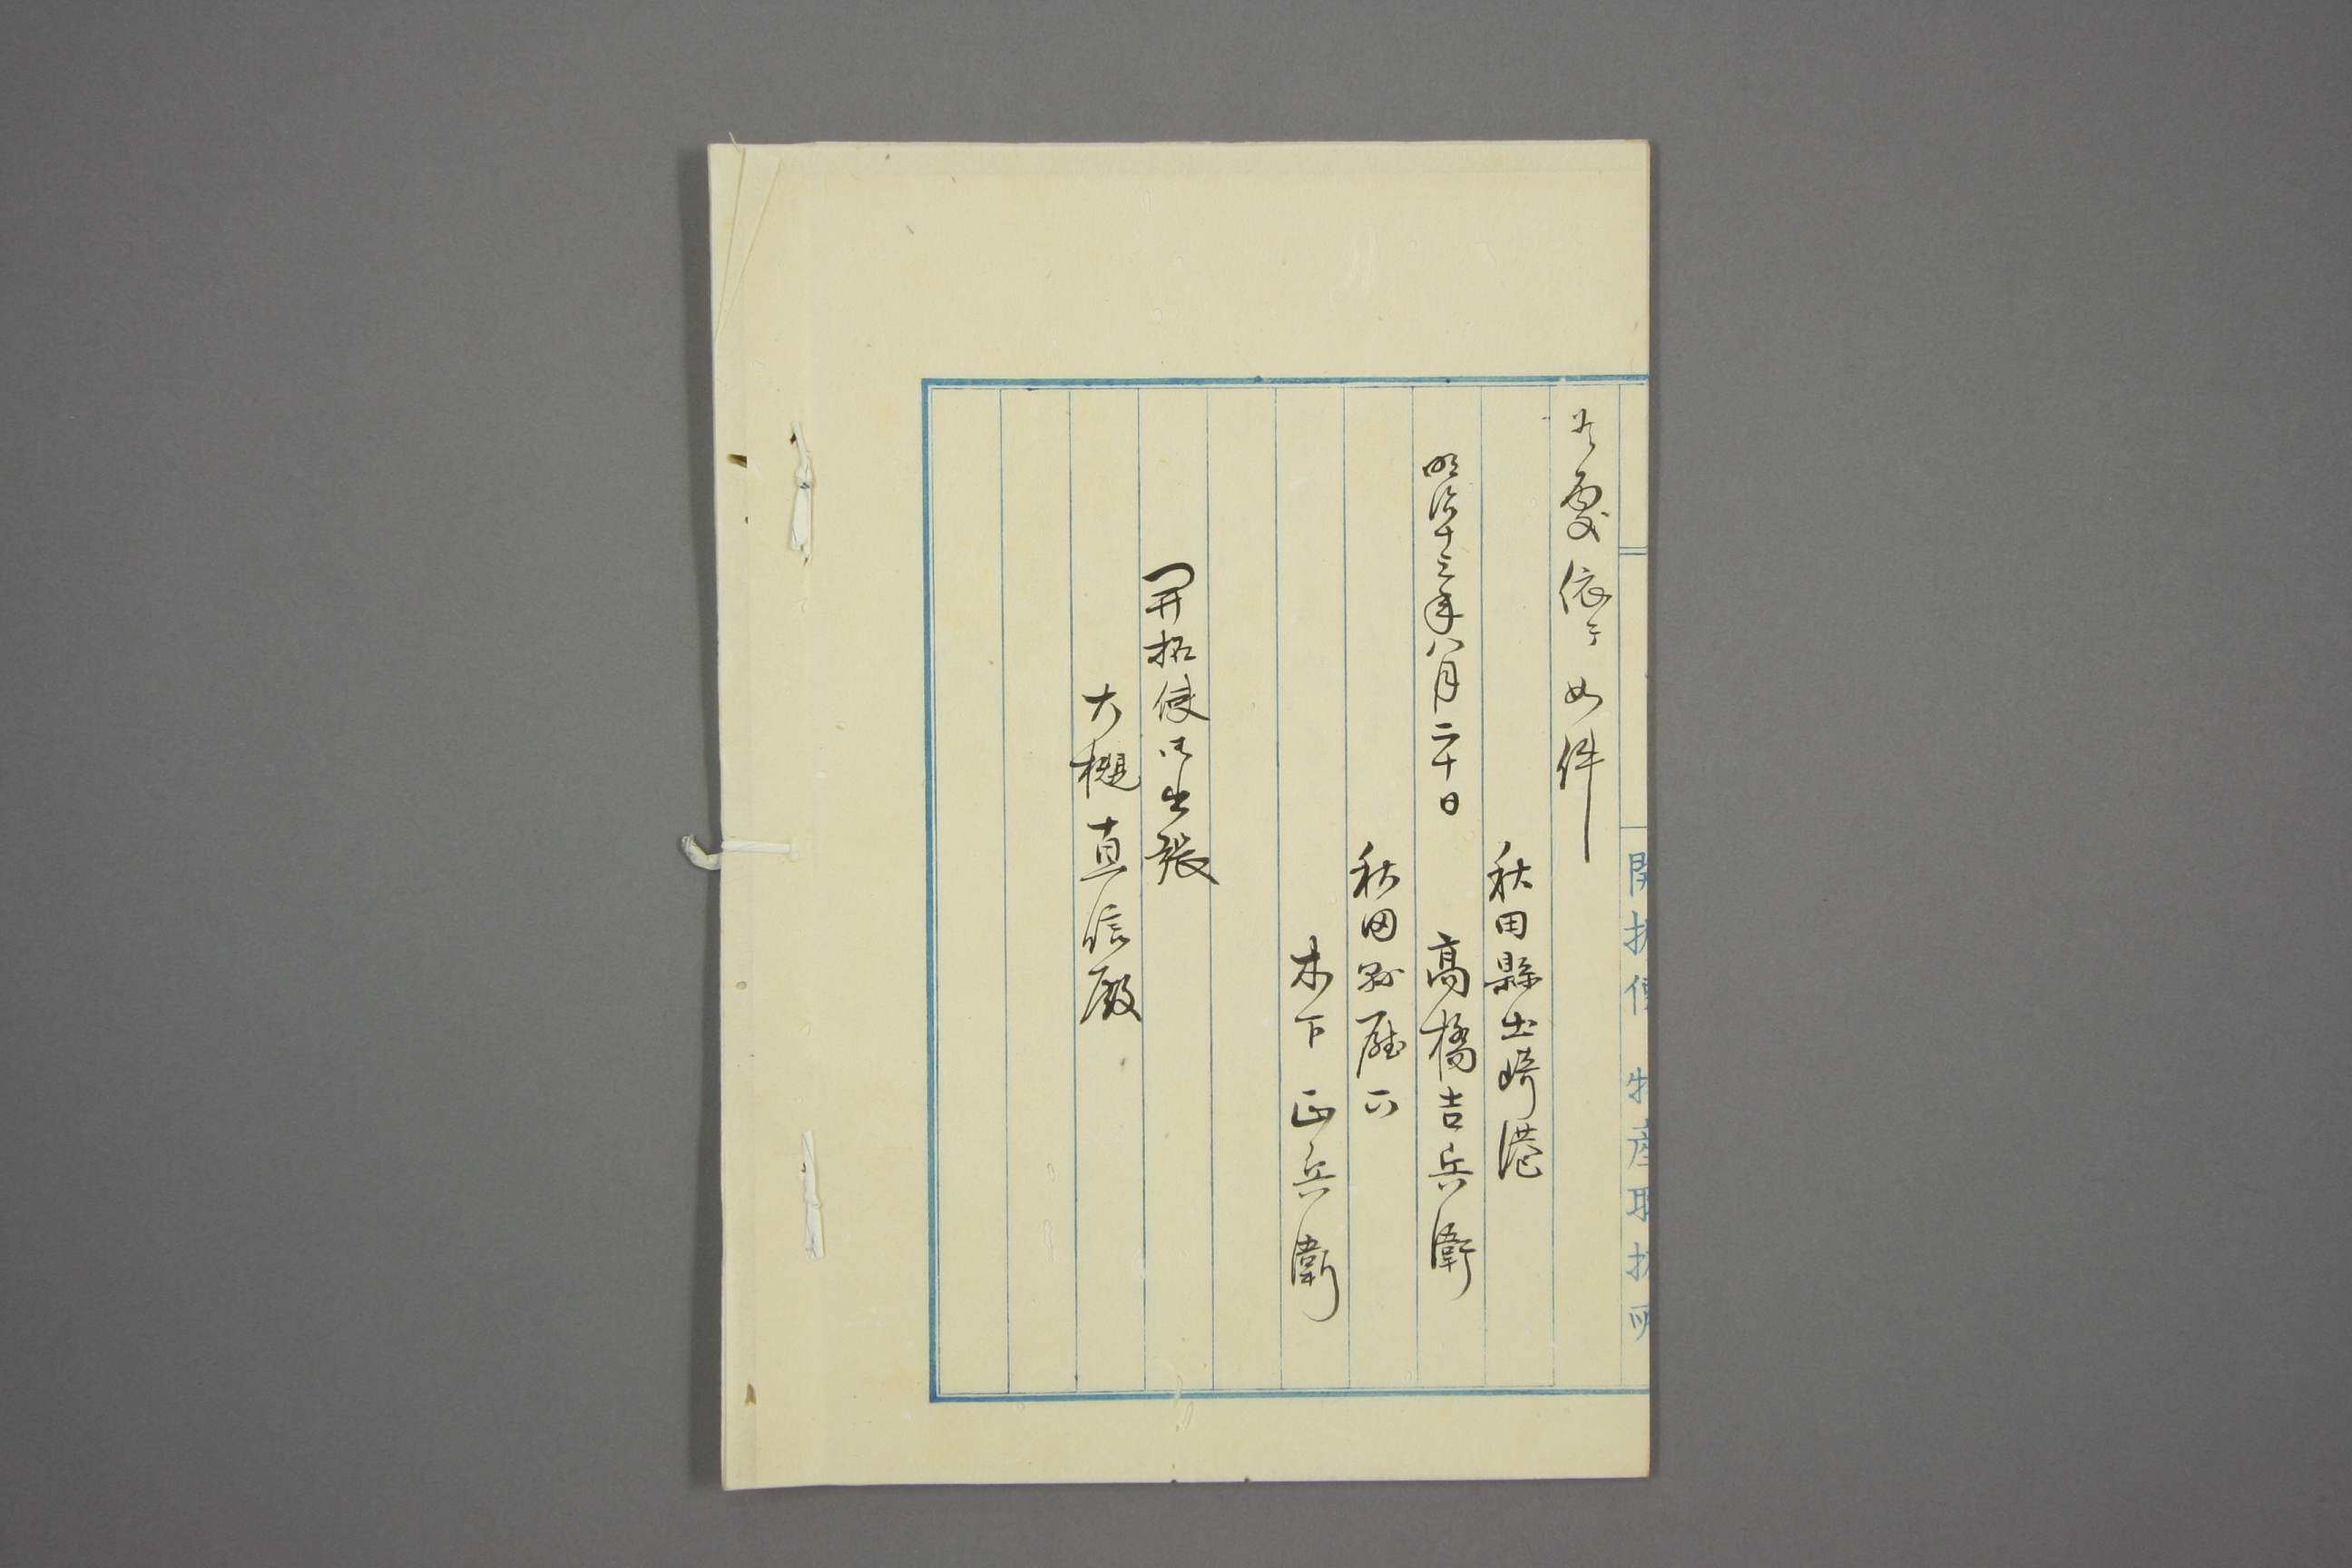 開拓使 物産取扱所
為憂依テ如件
秋田縣土崎港
明治十三年八月二十日 高橋吉兵衛
秋田縣廰下
木下正兵衛
開拓使御出張
大槌直信殿